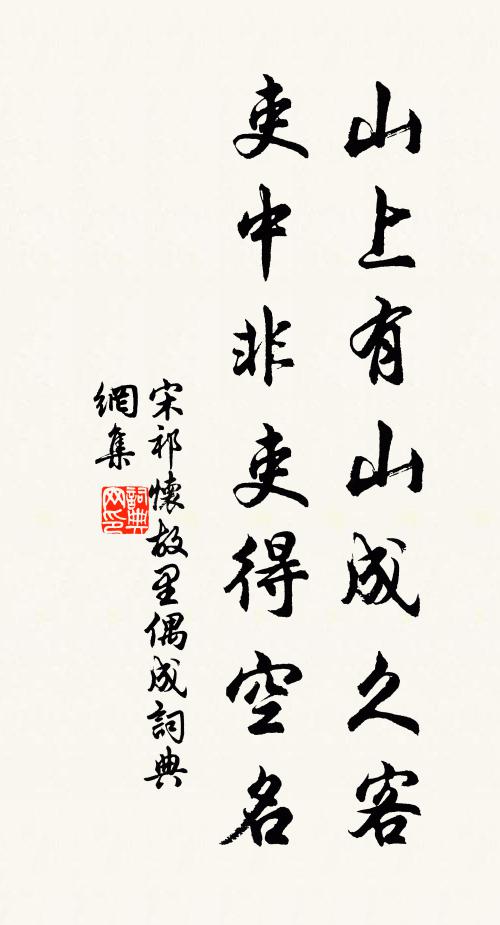 山上有山成久客
吏中非吏得空名
宋祁懷故里偶成詞典
網集
詞典
网印